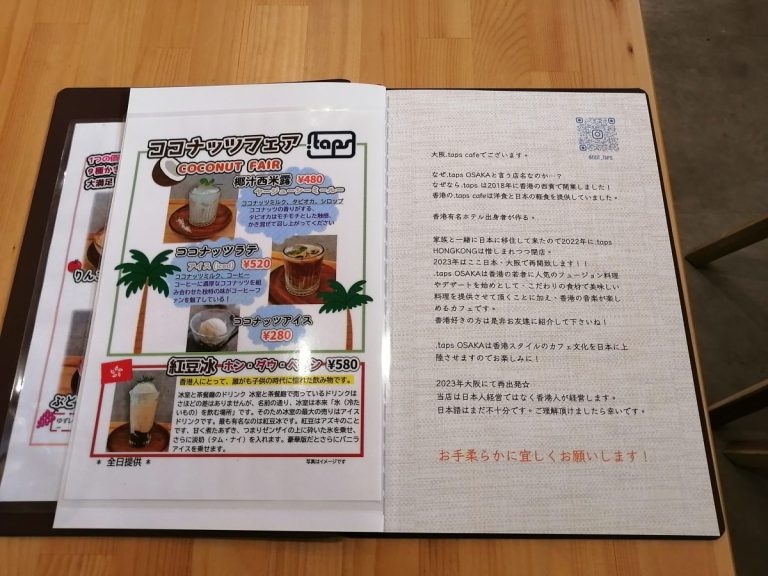 1つの価
9種か
大満足
りんご
ぶど
ゆずレ
ココナッツフェア .taps
COCONUT FAIR
椰汁西米露 ¥480
ヤージューシーミールー
ココナッツミルク、タピオカ、シロップ
ココナッツの香りがする、
タピオカはモチモチとした触感、
かき混ぜて召し上がってください
ココナッツラテ
アイス(iced) ¥520
ココナッツミルク、コーヒー
コーヒーに濃厚なココナッツを組
み合わせた独特の味がコーヒーフ
ァンを魅了している!
ココナッツアイス
¥280
紅豆冰 ホン・ダウ・ベン ¥580
香港人にとって、誰がも子供の時代に憧れた飲み物です。
冰室と茶餐廳のドリンク 冰室と茶餐廳で売っているドリンクは
さほどの差はありませんが、名前の通り、冰室は本来「氷(冷た
いもの)を飲む場所」です。そのため冰室の最大の売りはアイス
ドリンクです。最も有名なのは紅豆冰です。紅豆はアズキのこと
です、甘く煮たあずき、つまりゼンザイの上に砕いた氷を乗せ、
さらに淡奶(タム・ナイ)を入れます。豪華版だとさらにバニラ
アイスを乗せます。
* 全日提供 * 写真はイメージです
大阪.taps cafeでございます。
なぜ.taps OSAKAと言う店名なのか…?
なぜなら、taps は2018年に香港の西貢で開業しました!
香港の.taps cafeは洋食と日本の軽食を提供していました。
香港有名ホテル出身者が作る。
家族と一緒に日本に移住して来たので2022年に.taps
HONGKONGは惜しまれつつ閉店。
2023年はここ日本・大阪で再開致します!!
.taps OSAKAは香港の若者に人気のフュージョン料理
やデザートを始めとして・こだわりの食材で美味しい
料理を提供させて頂くことに加え・香港の音楽が楽し
めるカフェです。
香港好きの方は是非お友達に紹介して下さいね!
.taps OSAKAは香港スタイルのカフェ文化を日本に上
陸させますのでお楽しみに!
2023年大阪にて再出発☆
当店は日本人経営てはなく香港人が経営します。
日本語はまだ不十分です。ご理解頂けましたら幸いです。
お手柔らかに宜しくお願いします!